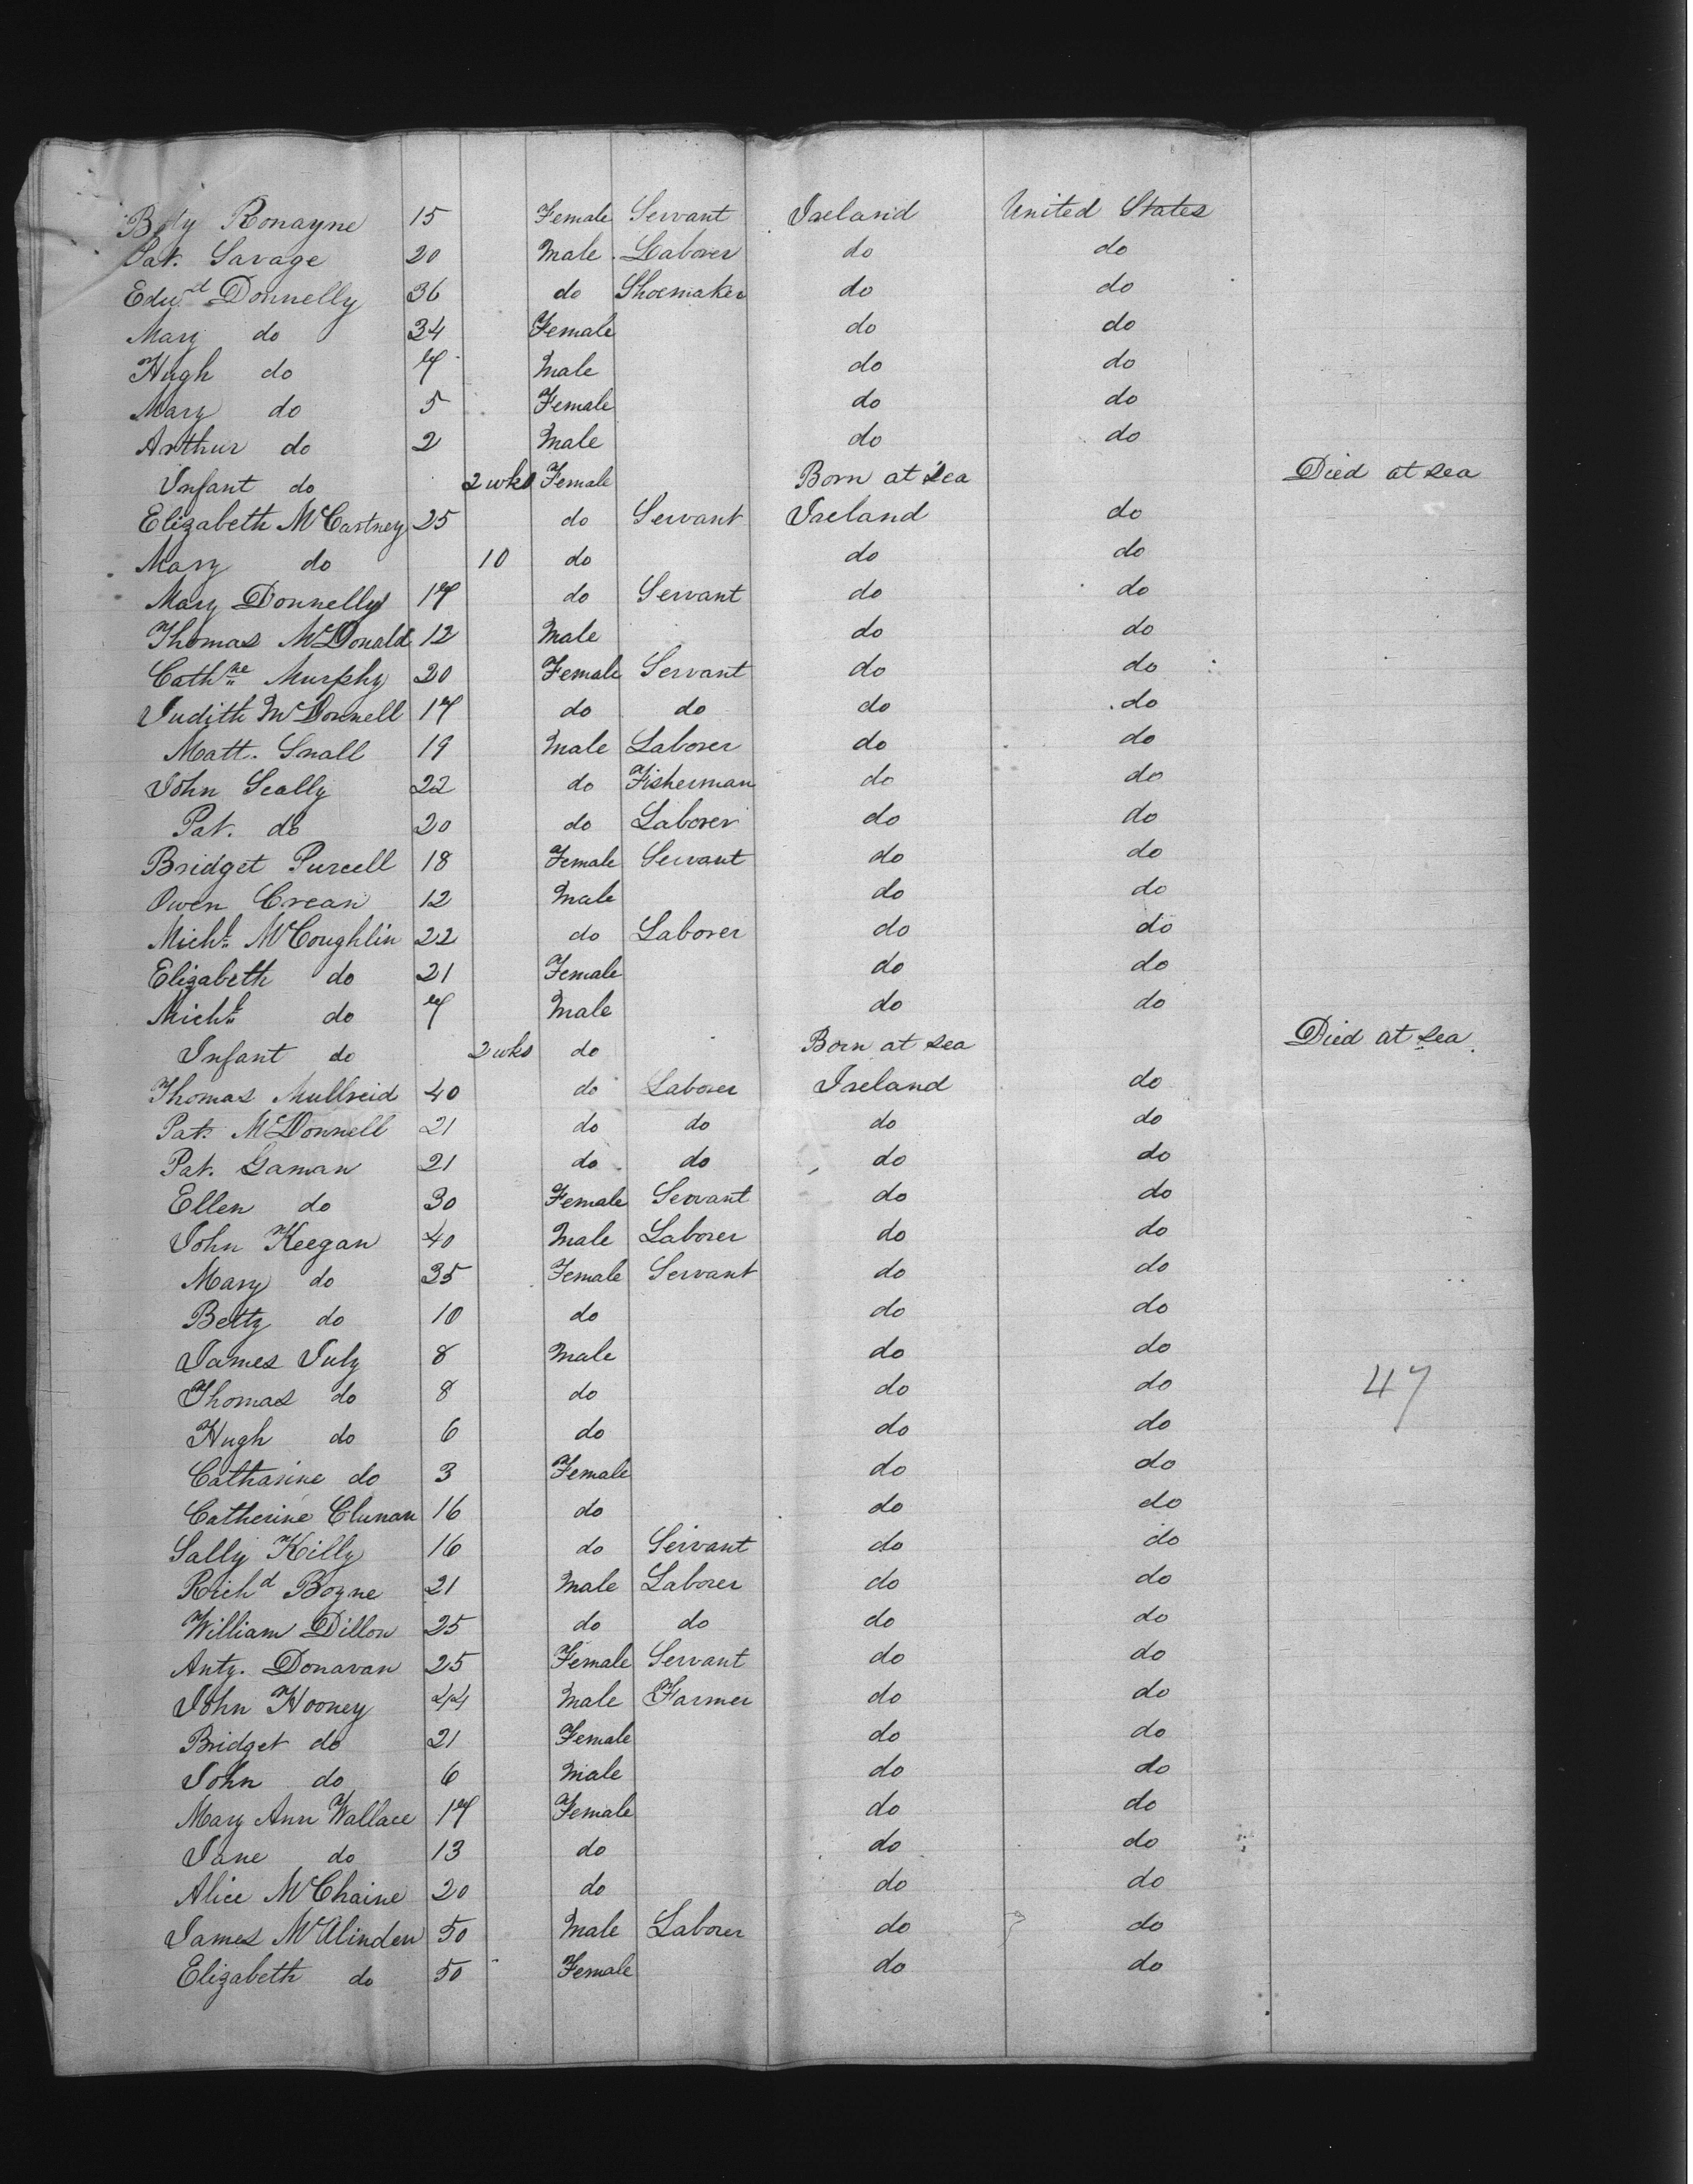 Bety Ronayne 15 Female Servant Ireland United States
Pat. Savage 20 Male Laborer do do
Edwd Donnelly 36 do Shoemaker do do
Mary do 34 Female do do
Hugh do 7 Male do do
Mary do 5 Female do do
Arthur do 2 Male do do
Infant do 2 wks Female Born at Sea Died at Sea
Elizabeth McCartney 25 do Servant Ireland do
Mary do 10 do do do
Mary Donnelly 17 do Servant do do
Thomas McDonald 12 Male do do
Cathne Murphy 20 Female Servant do do
Judith McDonnell 17 do do do do
Matt. Small 19 Male Laborer do do
John Scally 22 do Fisherman do do
Pat. do 20 do Laborer do do
Bridget Purcell 18 Female Servant do do
Owen Crean 12 Male do do
Michl McCoughlin 22 do Laborer do do
Elizabeth do 21 Female do do
Michl do 7 Male do do
Infant do 2 wks do Born at Sea Died at Sea
Thomas Mullreid 40 do Laborer Ireland do
Pat. McDonnell 21 do do do do
Pat. Gaman 21 do do do do
Ellen do 30 Female Servant do do
John Keegan 40 Male Laborer do do
Mary do 35 Female Servant do do
Betty do 10 do do do
James July 8 Male do do
Thomas do 8 do do do 47
Hugh do 6 do do do
Catharine do 3 Female do do
Catherine Clunan 16 do do do
Sally Killy 16 do Servant do do
Richd Boyne 21 Male Laborer do do
William Dillon 25 do do do do
Anty. Donavan 25 Female Servant do do
John Hooney 44 Male Farmer do do
Bridget do 21 Female do do
John do 6 Male do do
Mary Ann Wallace 17 Female do do
Jane do 13 do do do
Alice McChaine 20 do do do
James McAlinden 50 Male Laborer do do
Elizabeth do 50 Female do do